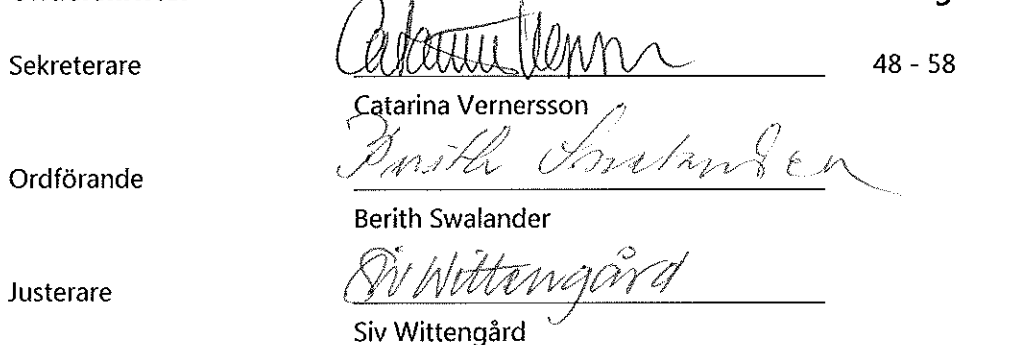 Sekreterare Catarina Vernersson 48 - 58
Catarina Vernersson
Ordförande Berith Swalander
Berith Swalander
Justerare Siv Wittengård
Siv Wittengård